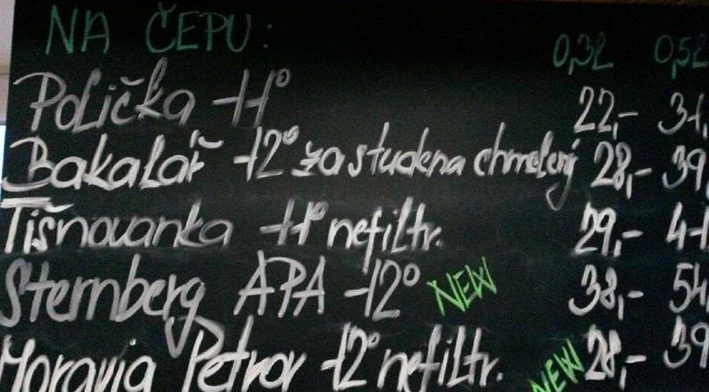 NA ČEPU: 0,3l 0,5l
Polička 11° 22,- 31,
Bakalář 12° za studena chmelený 28,- 39,
Tišnovanka 11° nefiltr. 29,- 41
Sternberg APA 12° NEW 38,- 54,
Moravia Petror 12° nefiltr. NEW 28,- 39